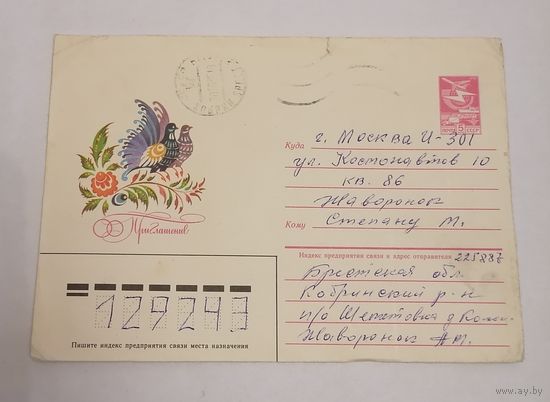 ПОЧТА СССР
5
Куда г. Москва И-301
ул. Космонавтов 10
кв. 86
Жаворонок
Кому Степану М.
Приглашение
Индекс предприятия связи и адрес отправителя 225887
Брестская обл
Кобринский р-н
п/о Шеметовка д
Жаворонок
129243
Пишите индекс предприятия связи места назначения
www.ay.by